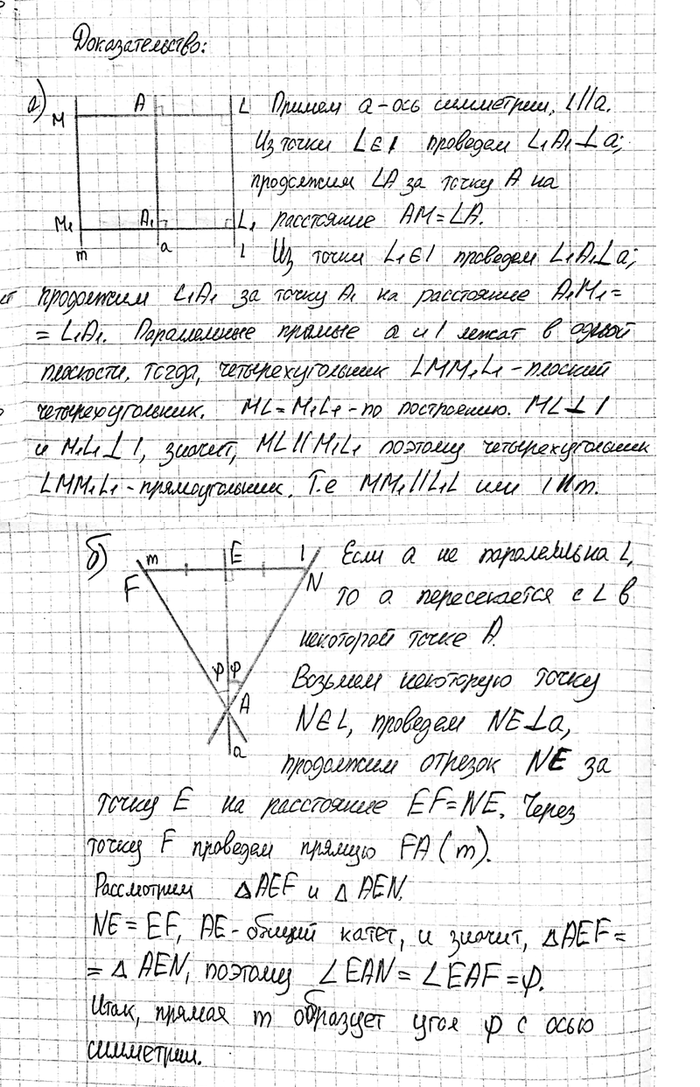 Доказательство:
а)
M A L
M₁ A₁ L₁
m a l
Примем a-ось симметрии, L∥a.
Из точки L∈l проведем L₁A₁⊥a;
продолжим LA за точку A на
расстояние AM=LA.
Из точки L₁∈l проведем L₁A₁⊥a;
продолжим L₁A₁ за точку A₁ на расстояние A₁M₁=
= L₁A₁. Параллельные прямые a и l лежат в одной
плоскости, тогда, четырехугольник LMM₁L₁-плоский
четырехугольник. ML=M₁L₁-по построению. ML⊥l
и M₁L₁⊥l, значит, ML∥M₁L₁ поэтому четырехугольник
LMM₁L₁-прямоугольник. Т.е MM₁∥L₁L или l∥m.
б)
m E l
F N
φ φ
A
a
Если a не паралельна L,
то a пересекается с L в
некоторой точке A.
Возьмем некоторую точку
N∈L, проведем NE⊥a,
продолжим отрезок NE за
точку E на расстояние EF=NE. Через
точку F проведем прямую FA(m).
Рассмотрим △AEF и △AEN.
NE=EF, AE-общий катет, и значит, △AEF=
=△AEN, поэтому ∠EAN=∠EAF=φ.
Итак, прямая m образует угол φ с осью
симметрии.